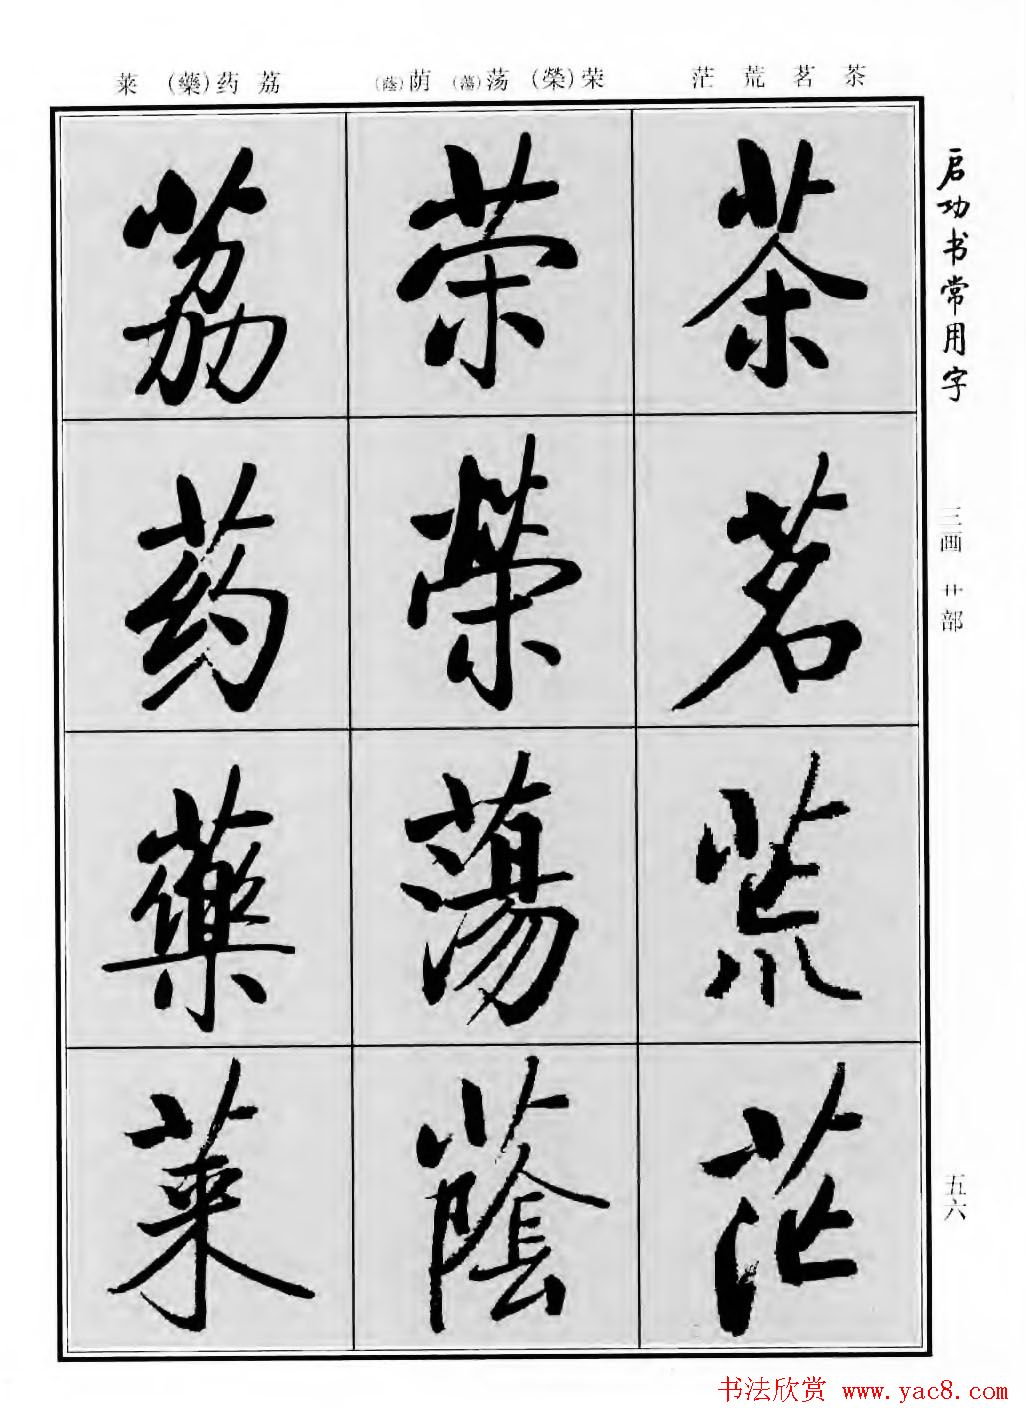 茶 茗 荒 茫
荣(榮) 荡(蕩) 荫(蔭)
荔 药(藥) 莱
茶
茗
荒
茫
荣
榮
蕩
蔭
荔
药
藥
萊
启功书常用字
三画 艹部
五六
书法欣赏 www.yac8.com